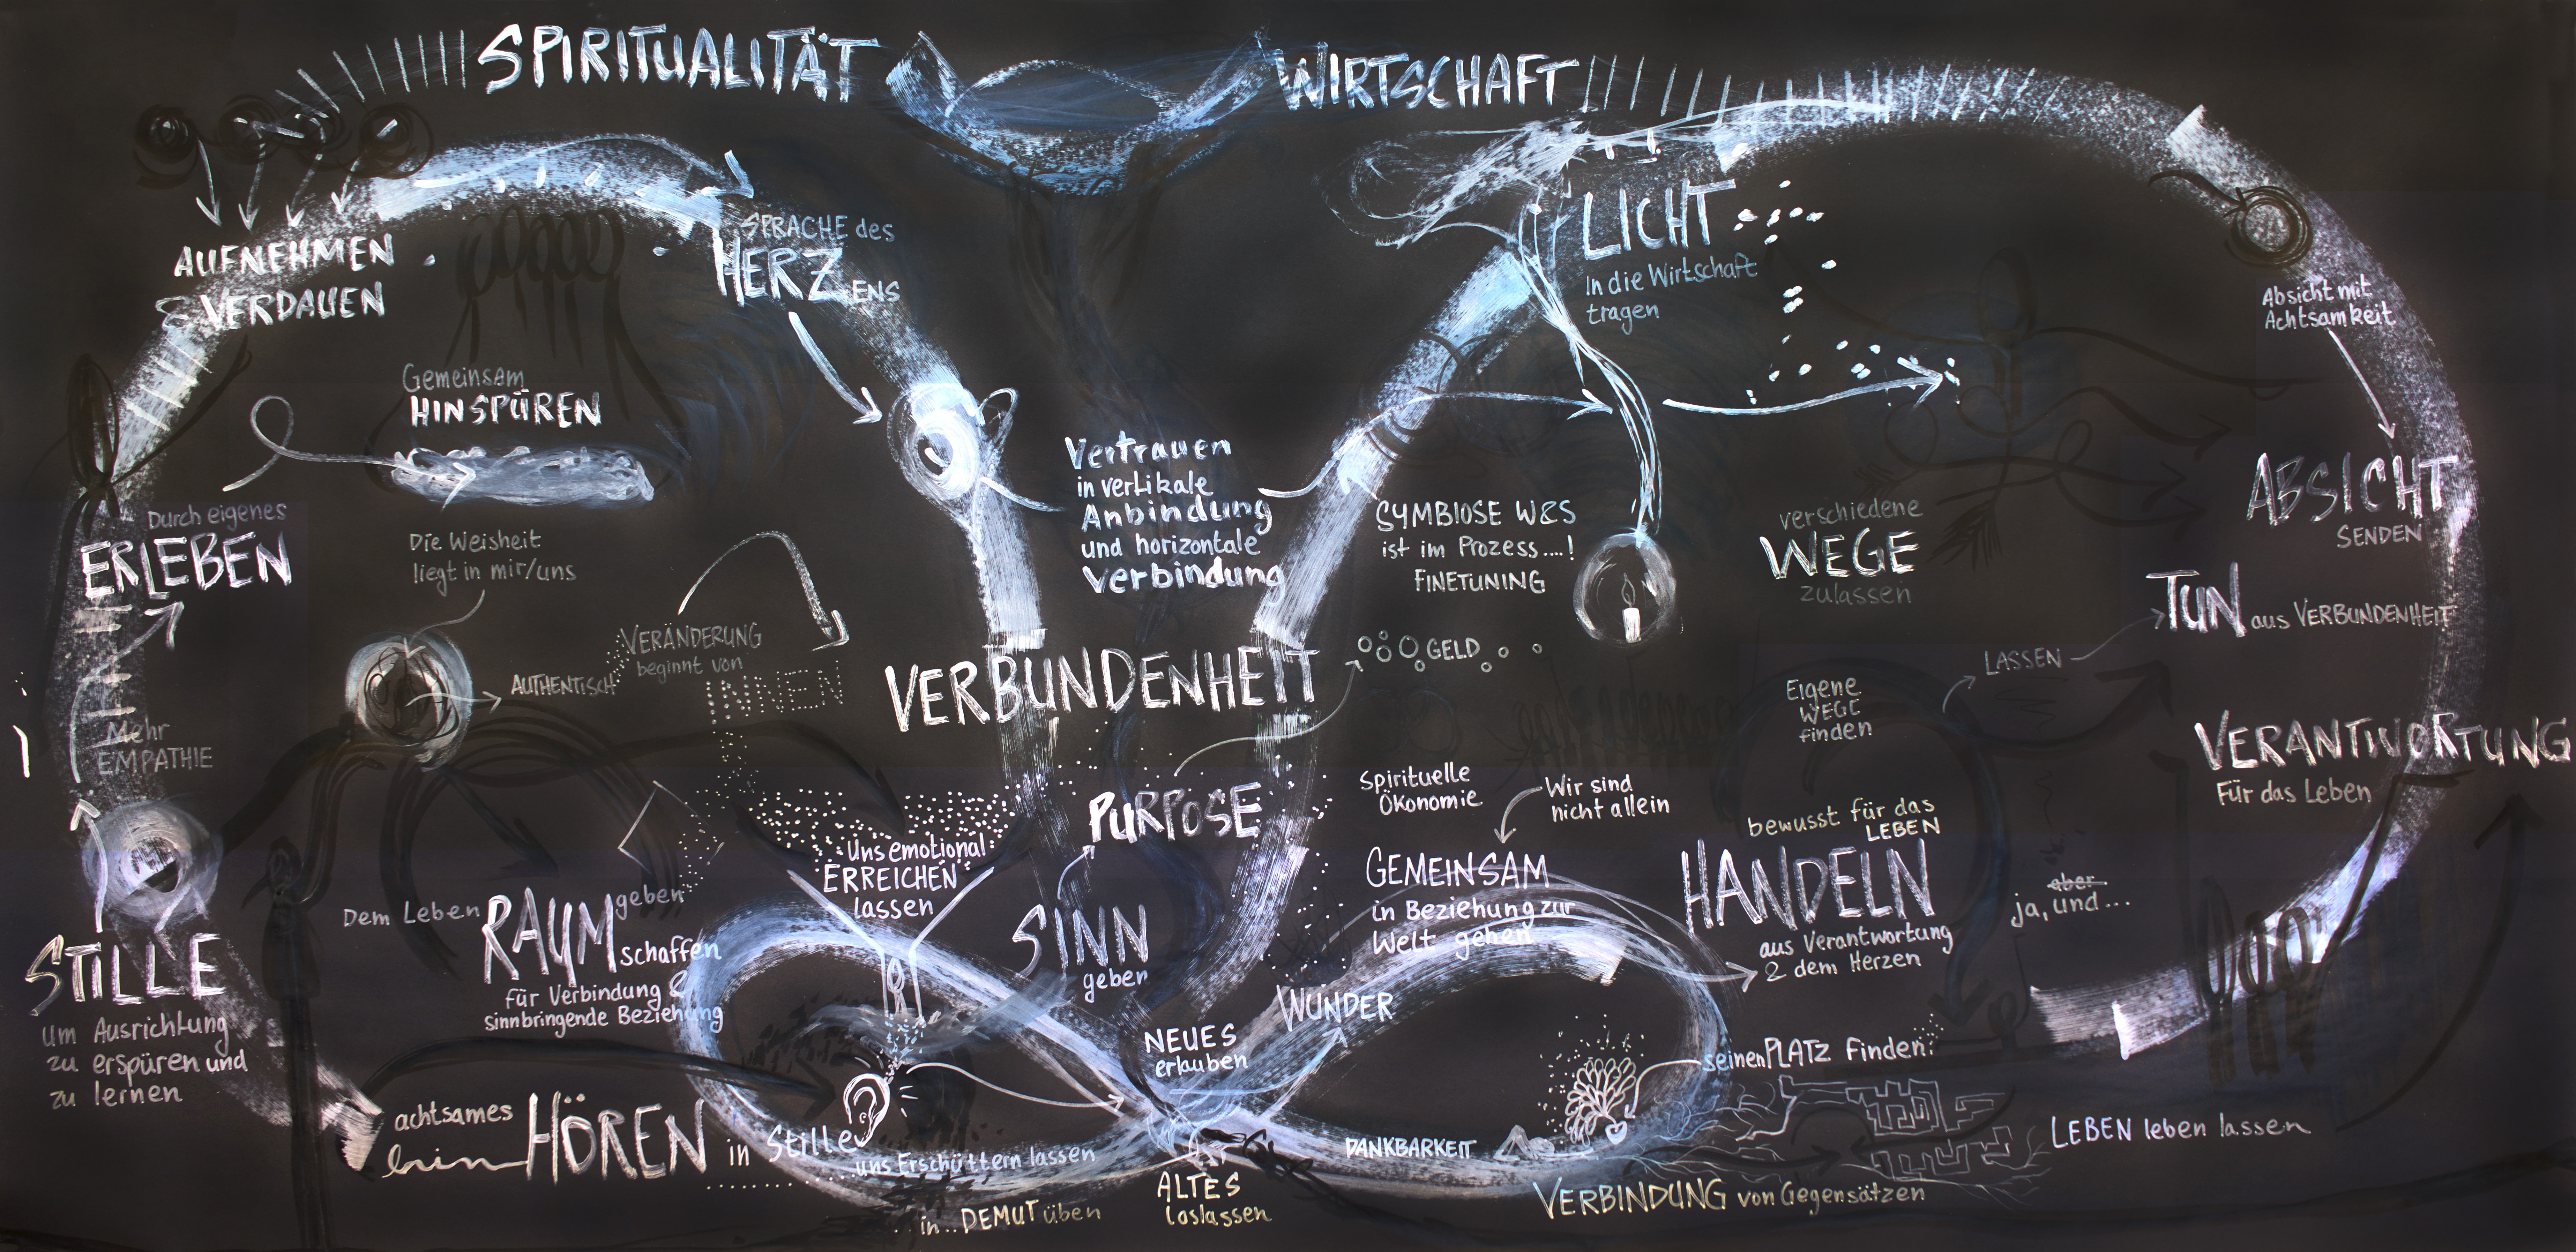 SPIRITUALITÄT
WIRTSCHAFT
AUFNEHMEN
& VERDAUEN
SPRACHE des
HERZENS
Gemeinsam
HINSPÜREN
Durch eigenes
ERLEBEN
Die Weisheit
liegt in mir/uns
AUTHENTISCH
VERÄNDERUNG
beginnt von
INNEN
Mehr
EMPATHIE
STILLE
um Ausrichtung
zu erspüren und
zu lernen
Dem Leben RAUM geben
schaffen
für Verbindung &
sinnbringende Beziehung
Uns emotional
ERREICHEN
lassen
achtsames
hinHÖREN in Stille
uns Erschüttern lassen
in.. DEMUT üben
Vertrauen
in vertikale
Anbindung
und horizontale
Verbindung
VERBUNDENHEIT
PURPOSE
SINN
geben
NEUES
erlauben
ALTES
loslassen
WUNDER
LICHT
In die Wirtschaft
tragen
SYMBIOSE W&S
ist im Prozess....!
FINETUNING
GELD
Spirituelle
Ökonomie
Wir sind
nicht allein
GEMEINSAM
in Beziehung zur
Welt gehen
DANKBARKEIT
verschiedene
WEGE
zulassen
Eigene
WEGE
finden
bewusst für das
LEBEN
HANDELN
aus Verantwortung
& dem Herzen
seinen PLATZ finden
VERBINDUNG von Gegensätzen
LEBEN leben lassen
aber
ja, und ...
LASSEN
TUN aus VERBUNDENHEIT
Absicht mit
Achtsamkeit
ABSICHT
SENDEN
VERANTWORTUNG
Für das Leben